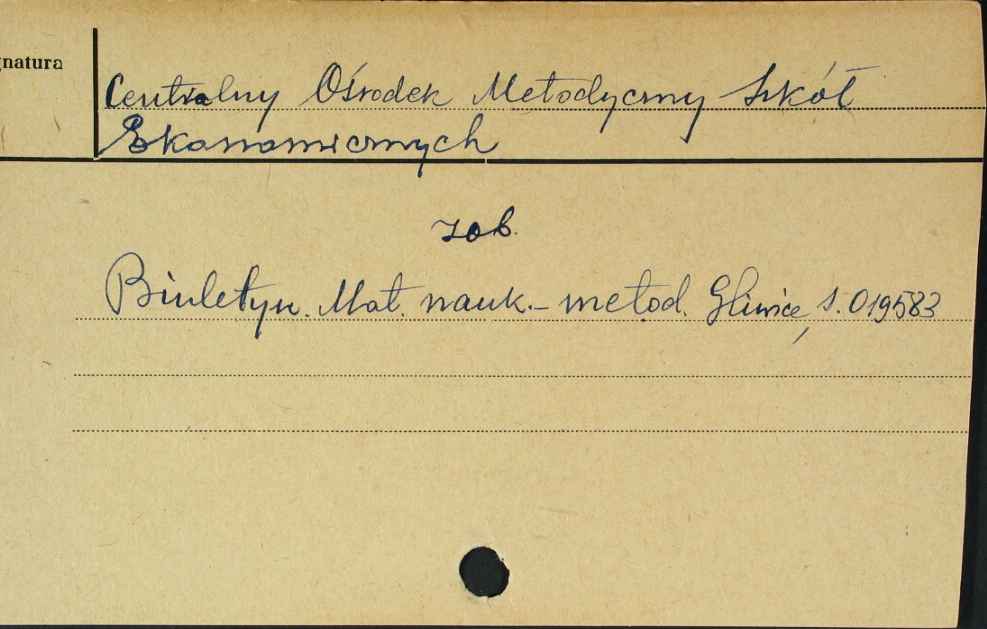 gnatura
Centralny Ośrodek Metodyczny Szkół
Ekonomicznych
zob.
Biuletyn. Mat. nauk.-metod. Gliwice, S. 019583